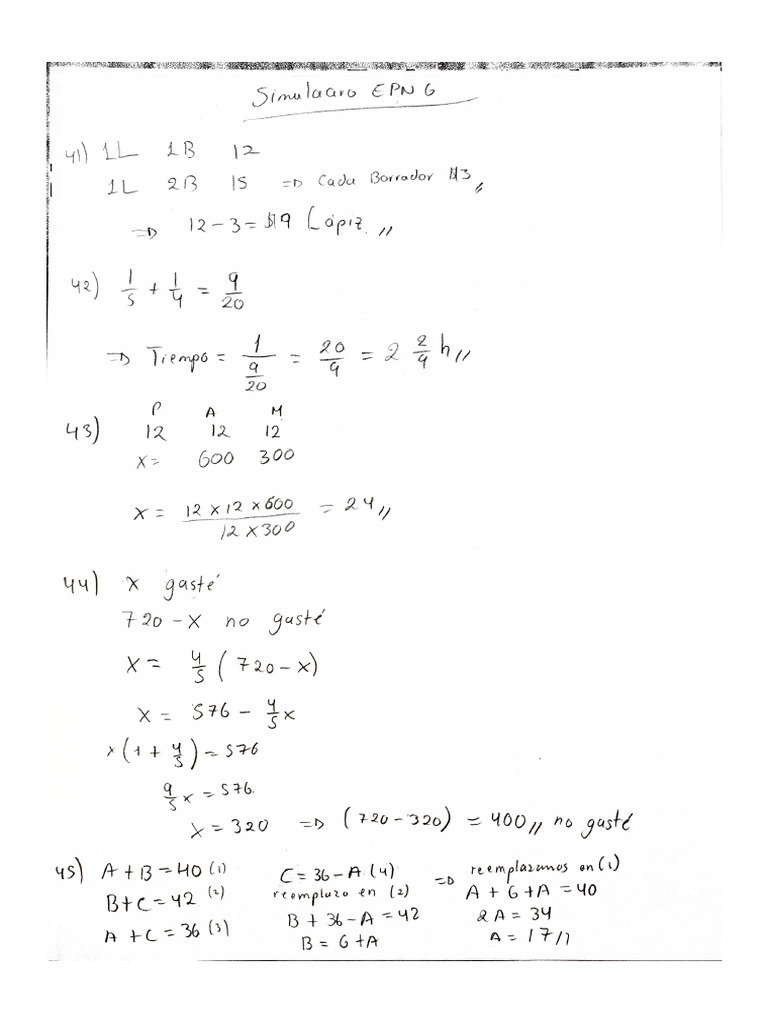 Simulacro EPN 6
41) 1L 1B 12
1L 2B 15 => Cada Borrador $3,,
=> 12 - 3 = $9 Lápiz,,
42) 1/5 + 1/4 = 9/20
=> Tiempo = 1/(9/20) = 20/9 = 2 2/9 h,,
43) P A M
12 12 12
x = 600 300
x = (12 x 12 x 600)/(12 x 300) = 24,,
44) x gasté
720 - x no gasté
x = 4/5 (720 - x)
x = 576 - 4/5 x
x(1 + 4/5) = 576
9/5 x = 576
x = 320 => (720 - 320) = 400,, no gasté
45) A + B = 40 (1)
B + C = 42 (2)
A + C = 36 (3)
C = 36 - A (4)
reemplazo en (2)
B + 36 - A = 42
B = 6 + A
=> reemplazamos en (1)
A + 6 + A = 40
2A = 34
A = 17,,